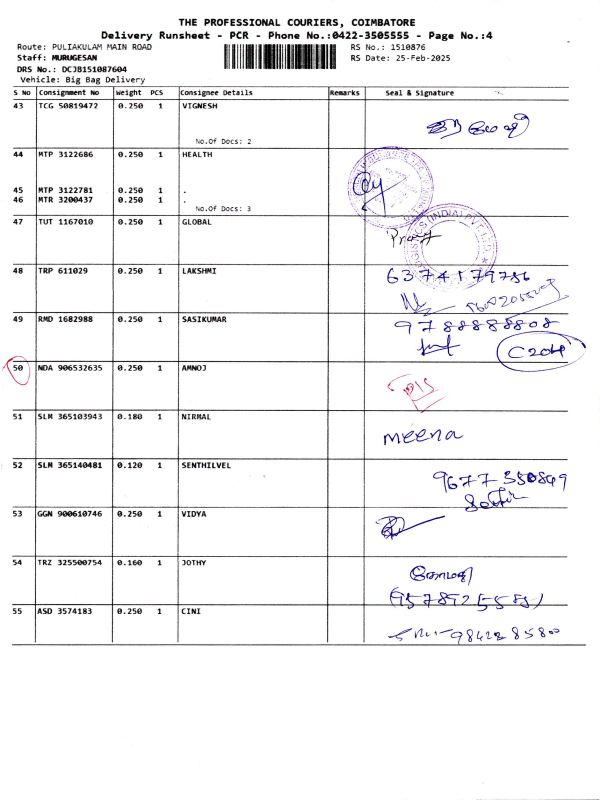 THE PROFESSIONAL COURIERS, COIMBATORE
Delivery Runsheet - PCR - Phone No.:0422-3505555 - Page No.:4
Route: PULIAKULAM MAIN ROAD RS No.: 1510876
Staff: MURUGESAN RS Date: 25-Feb-2025
DRS No.: DCJB151087604
Vehicle: Big Bag Delivery
S No Consignment No Weight PCS Consignee Details Remarks Seal & Signature
43 TCG 50819472 0.250 1 VIGNESH
No.Of Docs: 2
44 MTP 3122686 0.250 1 HEALTH
45 MTP 3122781 0.250 1 .
46 MTR 3200437 0.250 1 .
No.Of Docs: 3
47 TUT 1167010 0.250 1 GLOBAL
48 TRP 611029 0.250 1 LAKSHMI
63741 79786
49 RMD 1682988 0.250 1 SASIKUMAR
9788888808
C204
50 NDA 906532635 0.250 1 AMNOJ
51 SLM 365103943 0.180 1 NIRMAL
meena
52 SLM 365140481 0.120 1 SENTHILVEL
9677 350849
53 GGN 900610746 0.250 1 VIDYA
54 TRZ 325500754 0.160 1 JOTHY
கோமதி
55 ASD 3574183 0.250 1 CINI
98422 85800